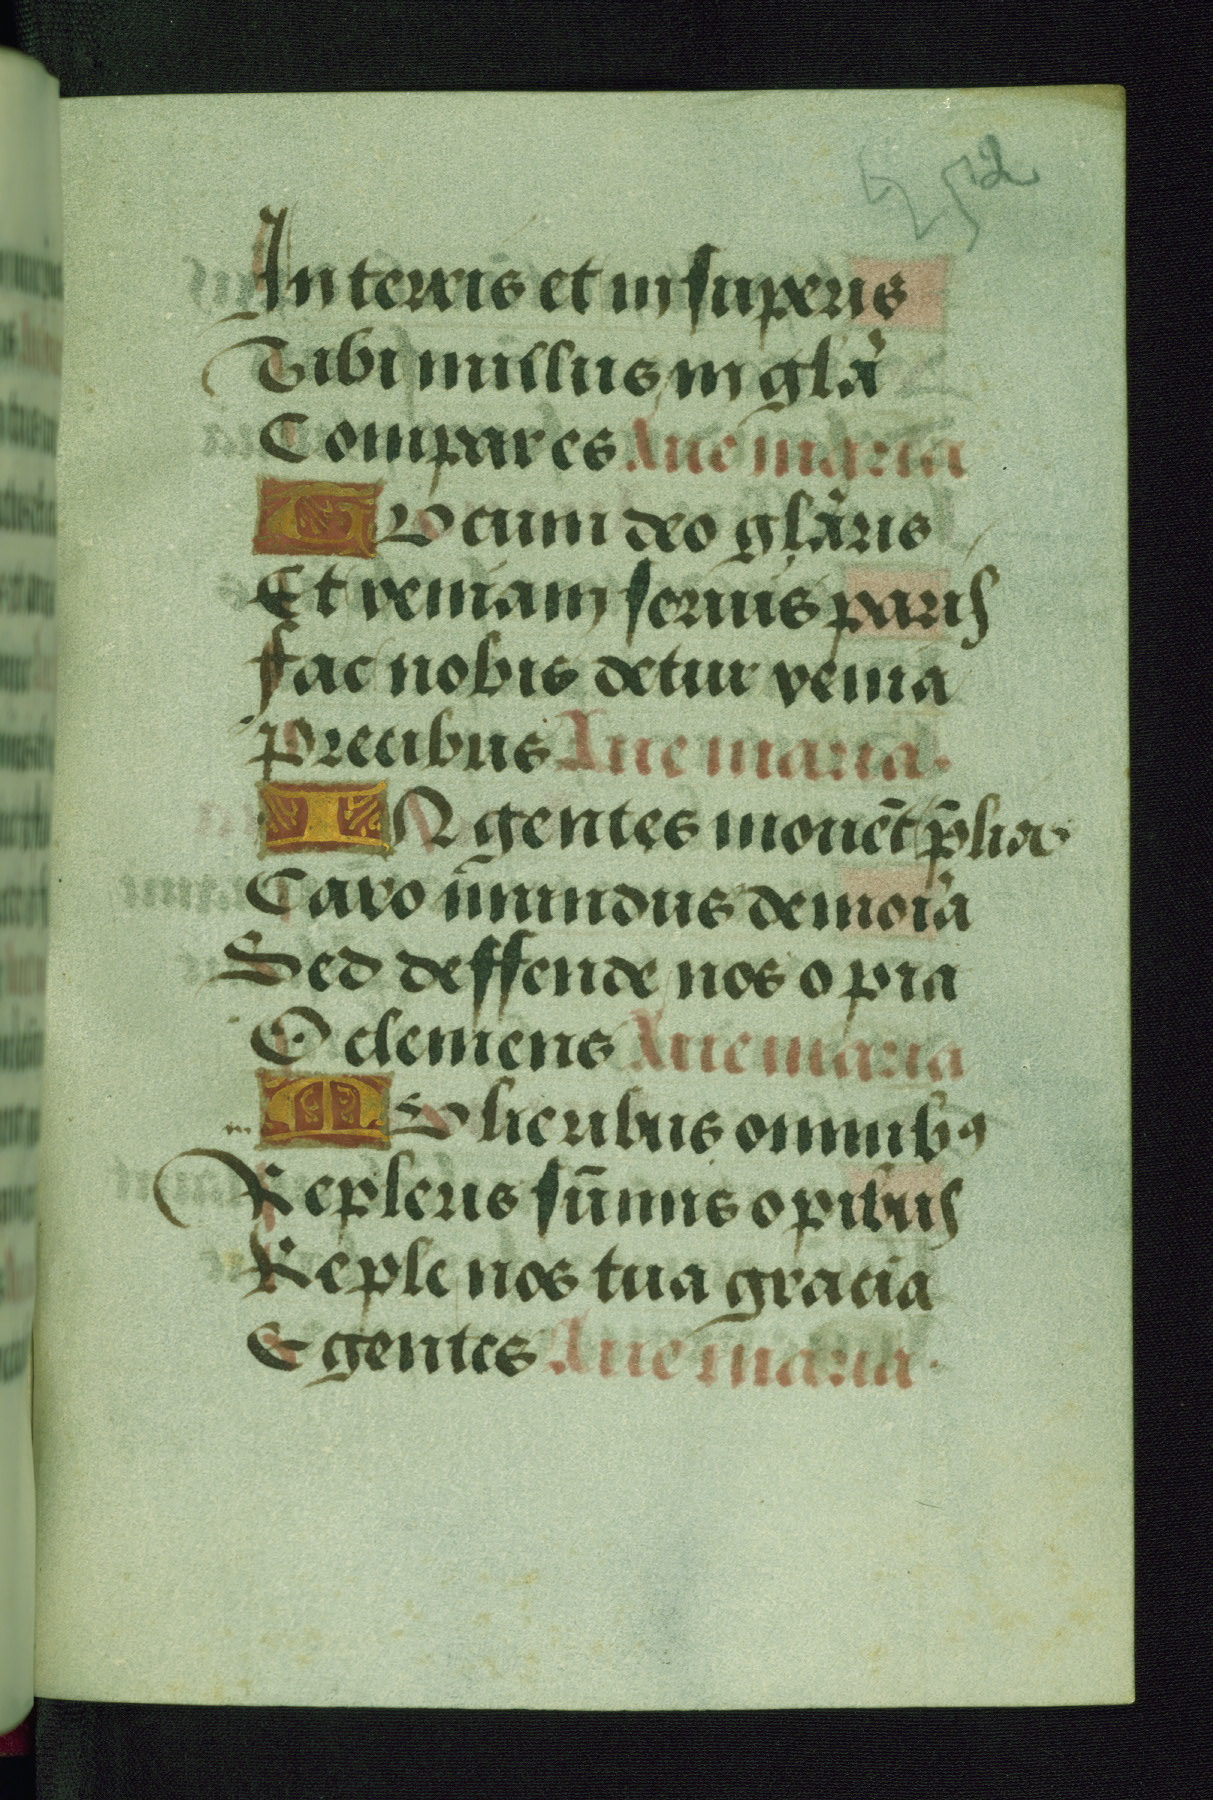 252
In terris et in superis
Tibi nullus in gl̃a
Compares Aue maria
Tu cum deo gl̃aris
Et veniam seruis paris
fac nobis detur venia
Precibus Aue maria.
In gentes mouet̃ p̃lia
Caro m̃undus demoĩa
Sed deffende nos o pia
O clemens Aue maria
m Mulieribus omnibꝰ
Repleris sũmis opibus
Reple nos tua gracia
Egentes Aue maria.